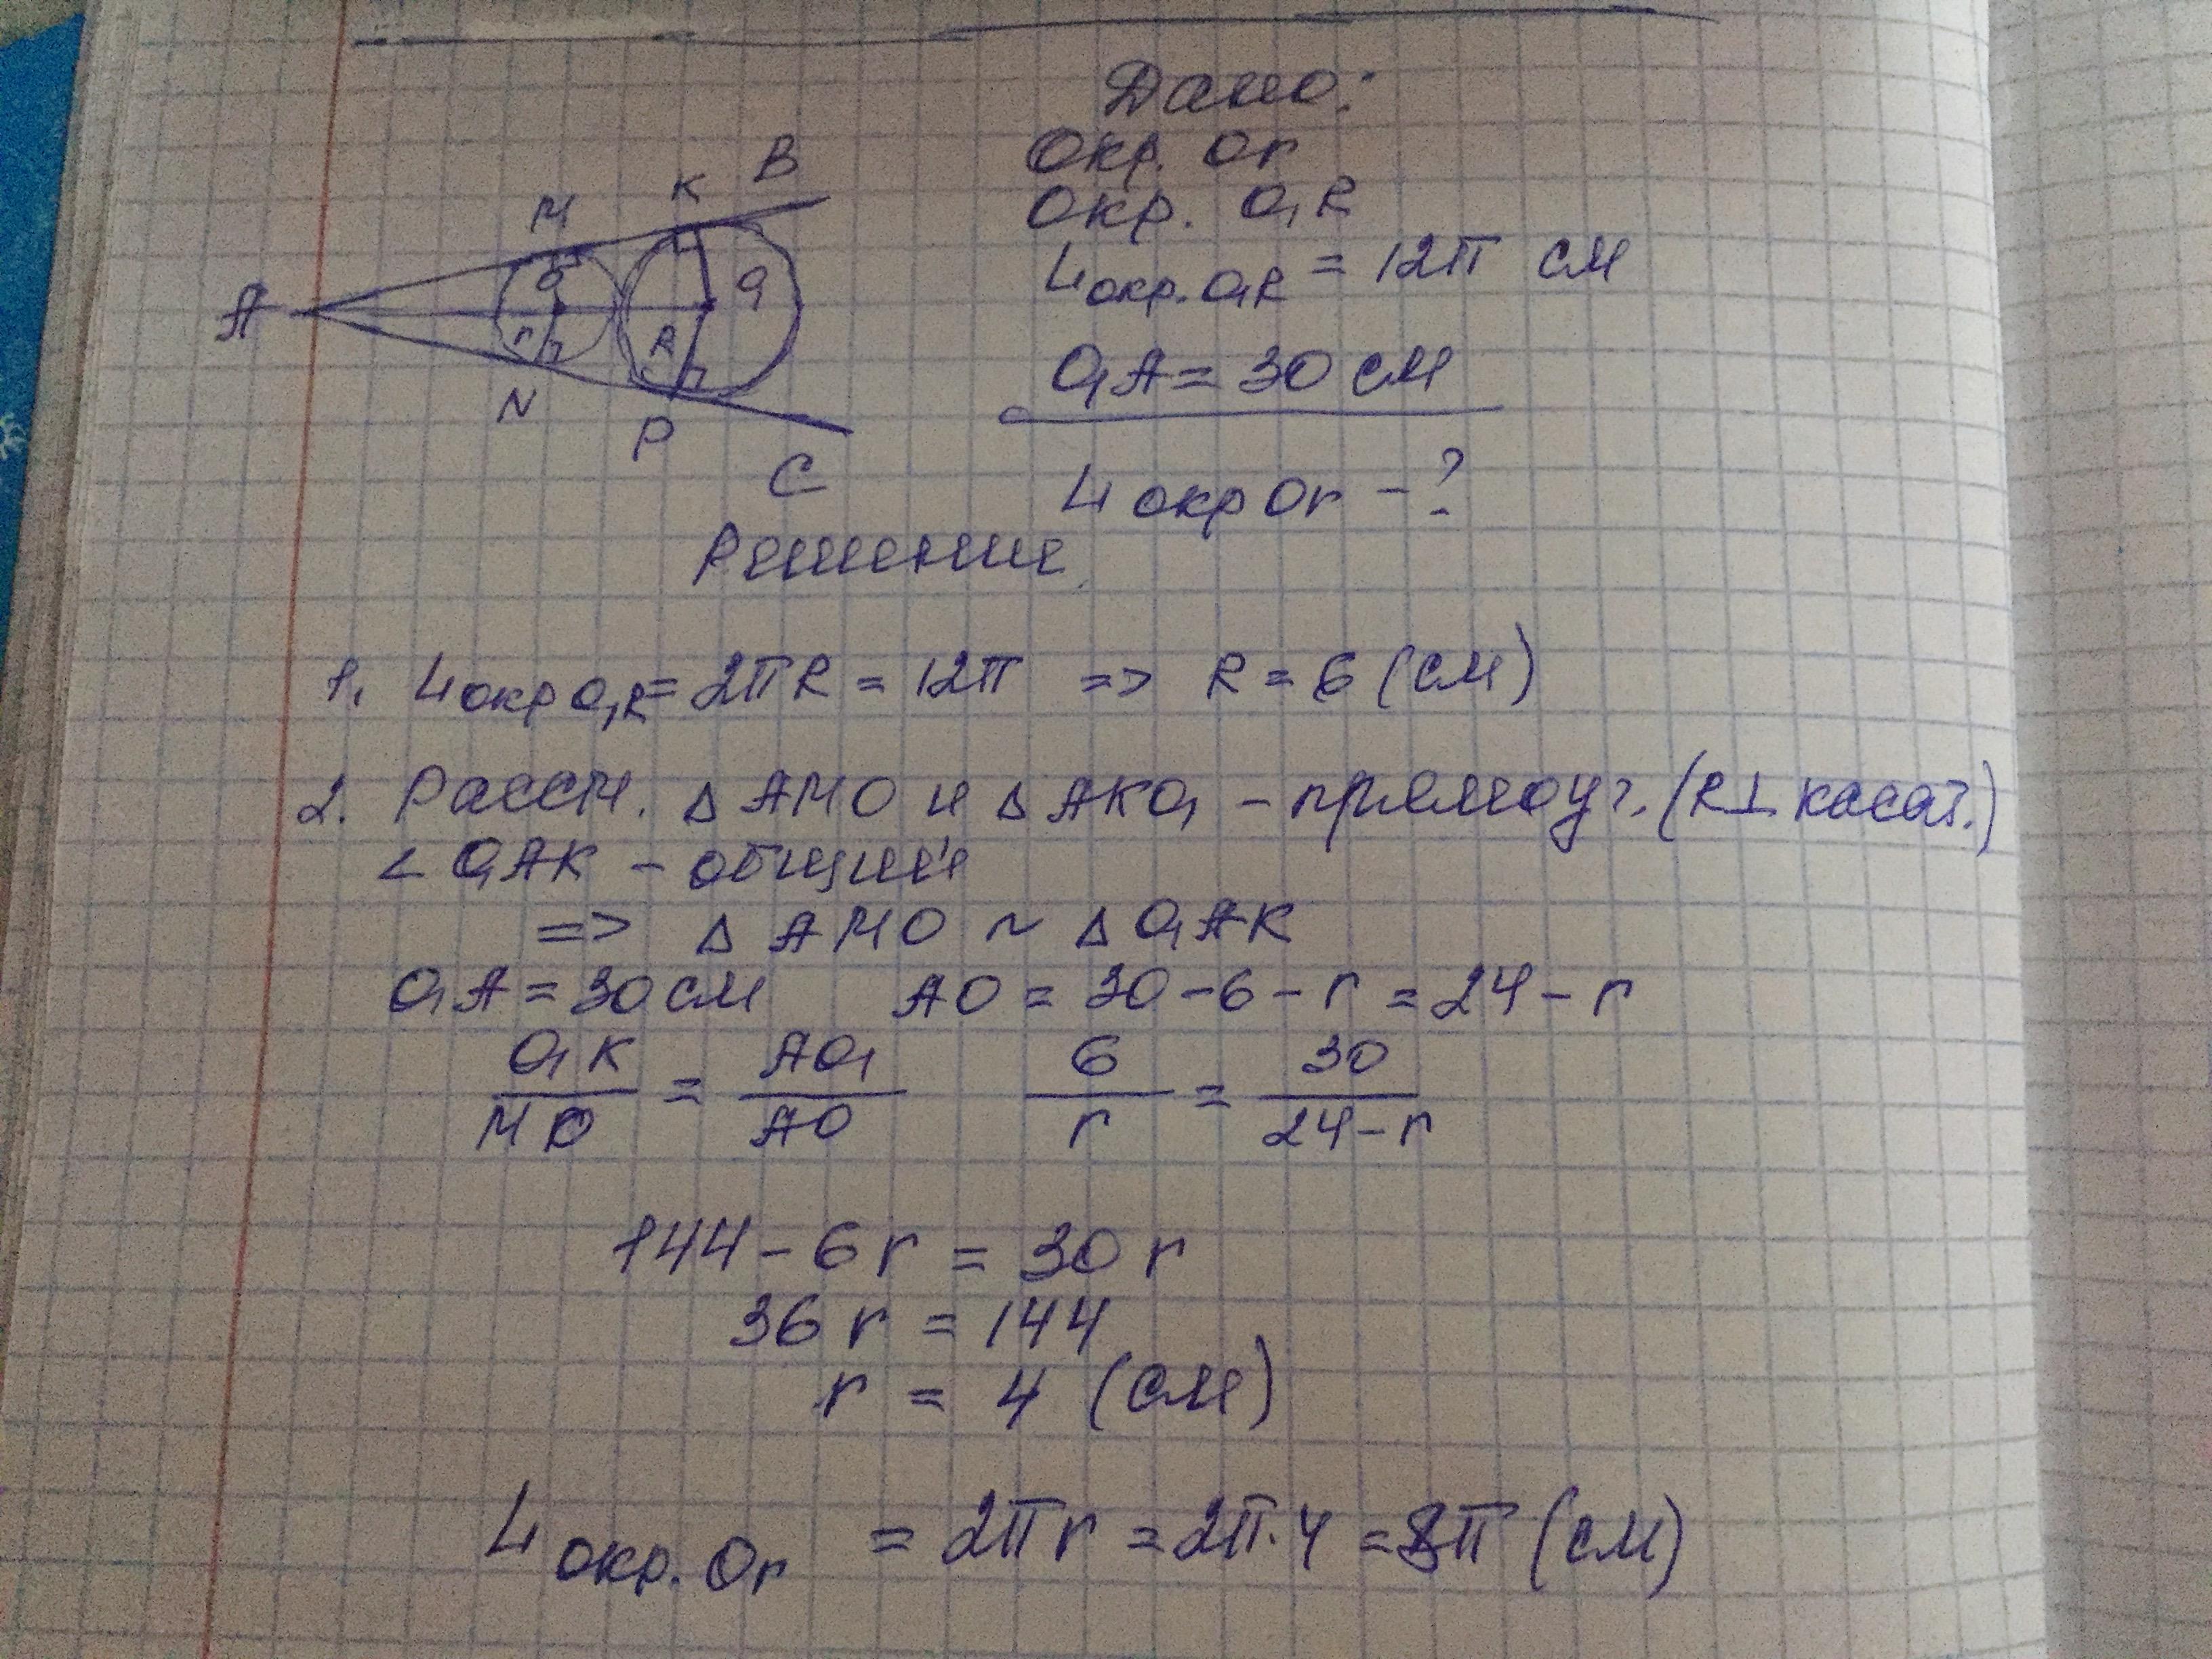 Дано:
Окр. Or
Окр. O₁R
L окр. O₁R = 12π см
O₁A = 30 см
L окр Or - ?
B
K
M
A
O
O₁
r
R
N
P
C
Решение
1. L окр O₁R = 2πR = 12π => R = 6 (см)
2. Рассм. △ AMO и △ AKO₁ - прямоуг. (R⊥ касат.)
∠ O₁AK - общий
=> △ AMO ~ △ O₁AK
O₁A = 30 см AO = 30 - 6 - r = 24 - r
O₁K / MO = AO₁ / AO 6 / r = 30 / 24 - r
144 - 6r = 30r
36 r = 144
r = 4 (см)
L окр. Or = 2πr = 2π·4 = 8π (см)